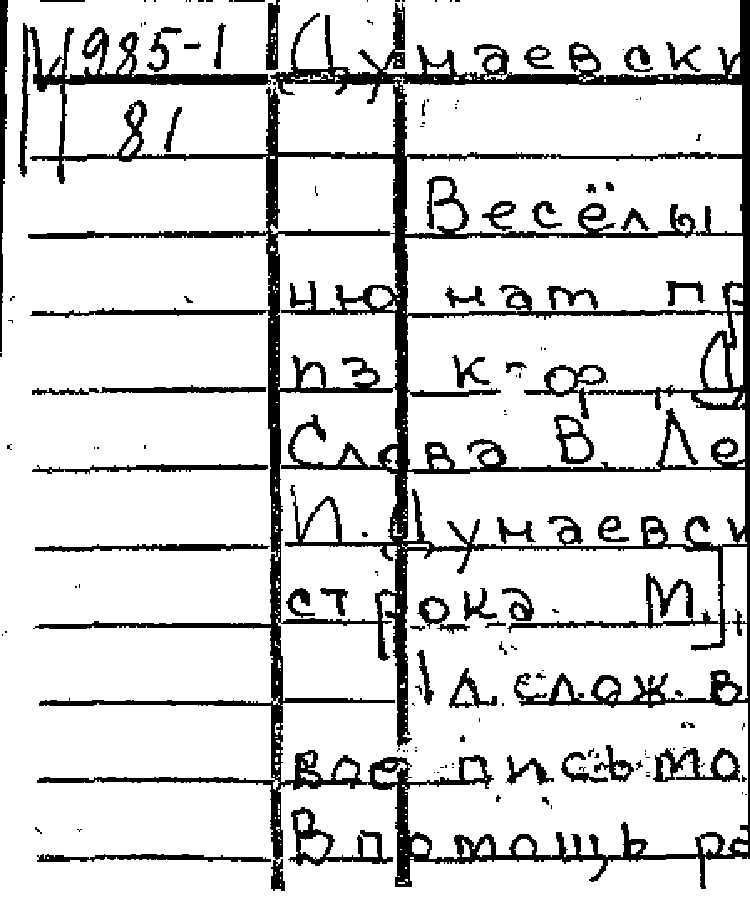 М985-1 Дунаевски
81
Весёлы
ню нат пр
пз к-ф Д
Слова В. Ле
И. Дунаевски
строка. М.],
1 л. слож. в
вое письмо.
В помощь ра